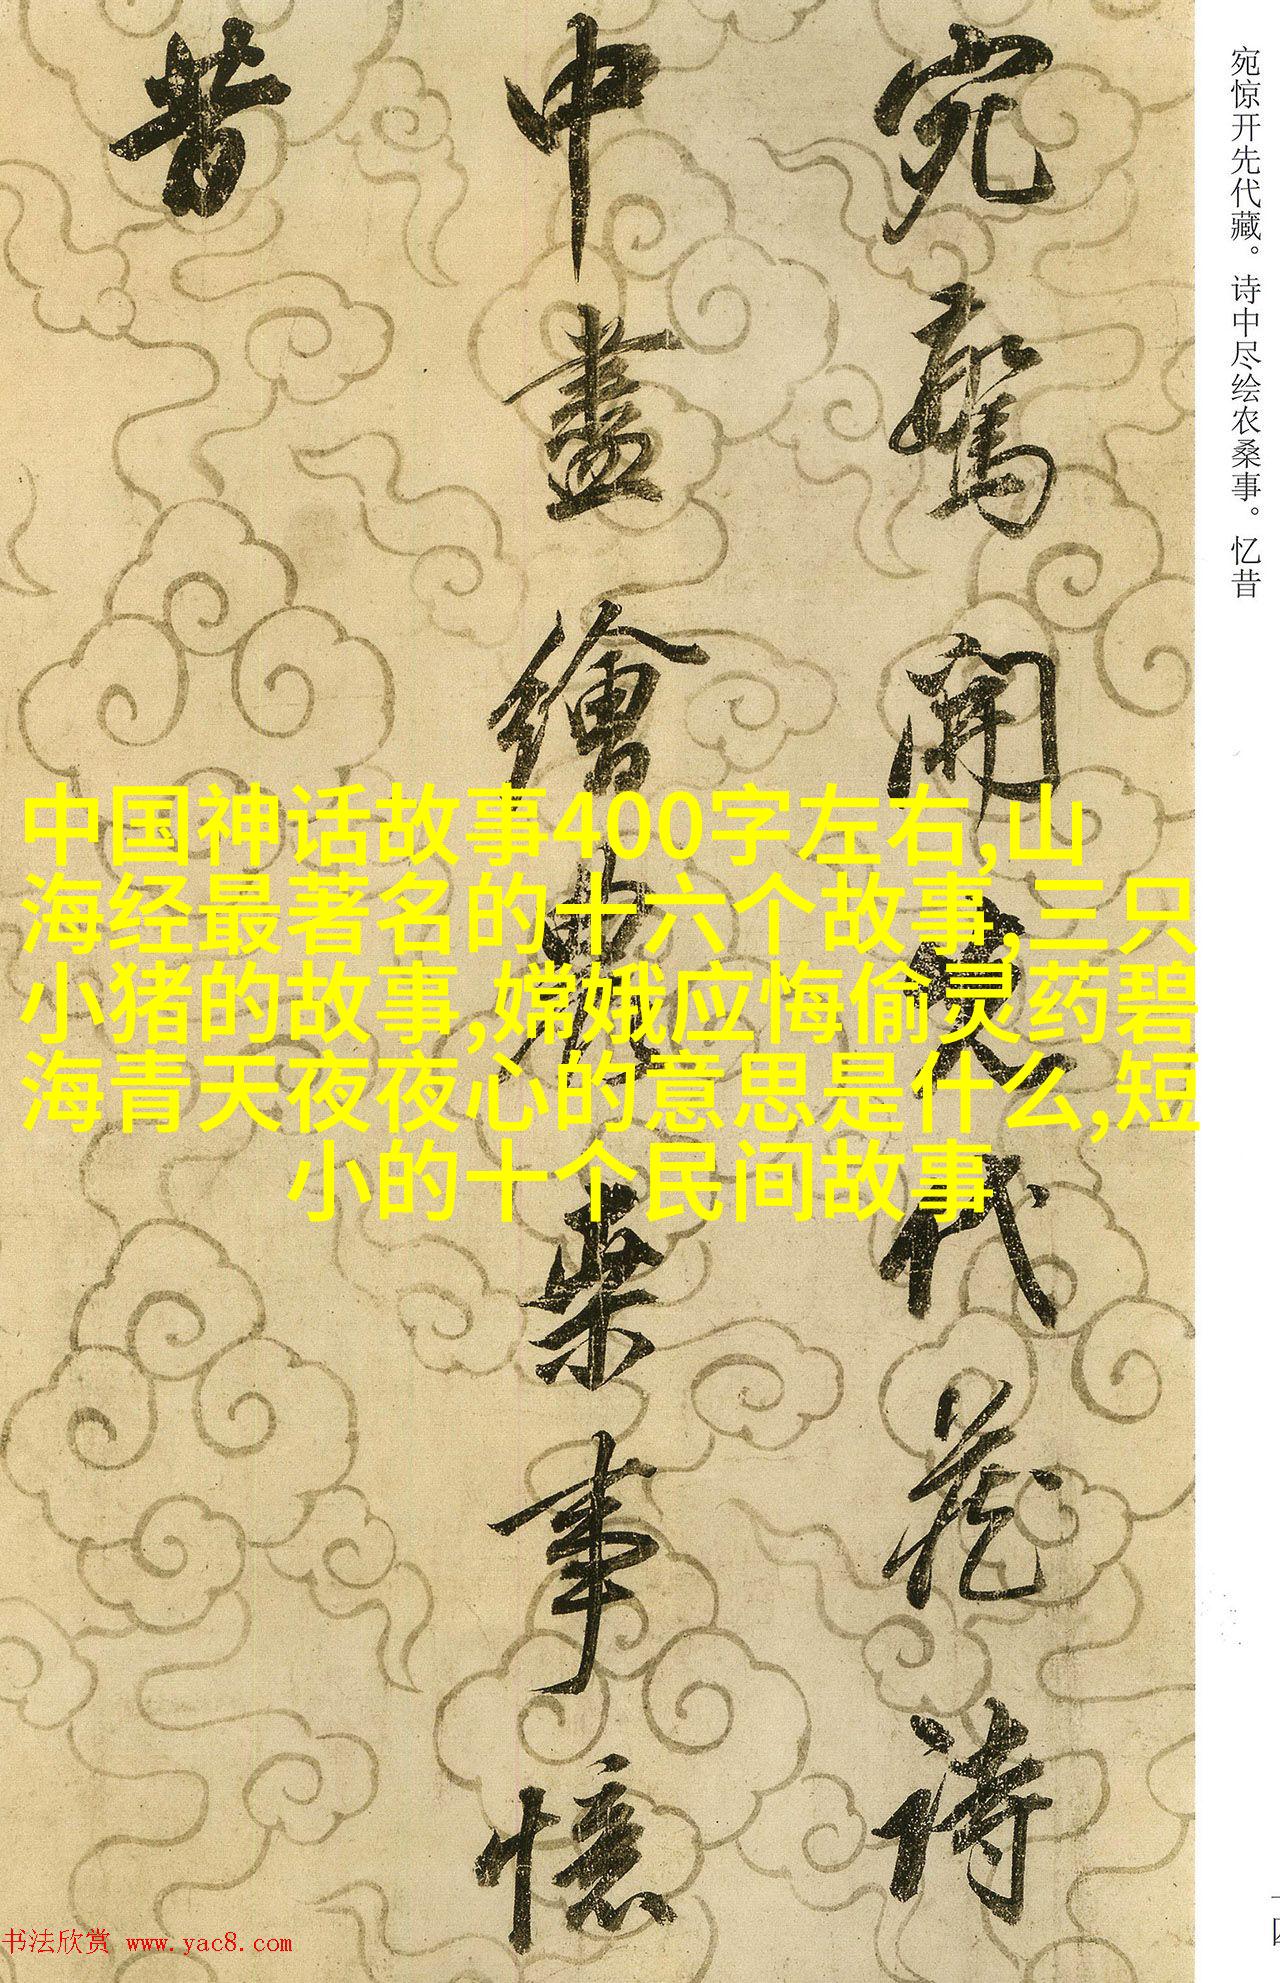 宛驚開先代藏詩
中盡繪農桑事憶
昔
宛惊开先代藏。诗中尽绘农桑事。忆昔
中国神话故事400字左右,山
海经最著名的十六个故事,三只
小猪的故事,嫦娥应悔偷灵药碧
海青天夜夜心的意思是什么,短
小的十个民间故事
书法欣赏 www.yac8.com